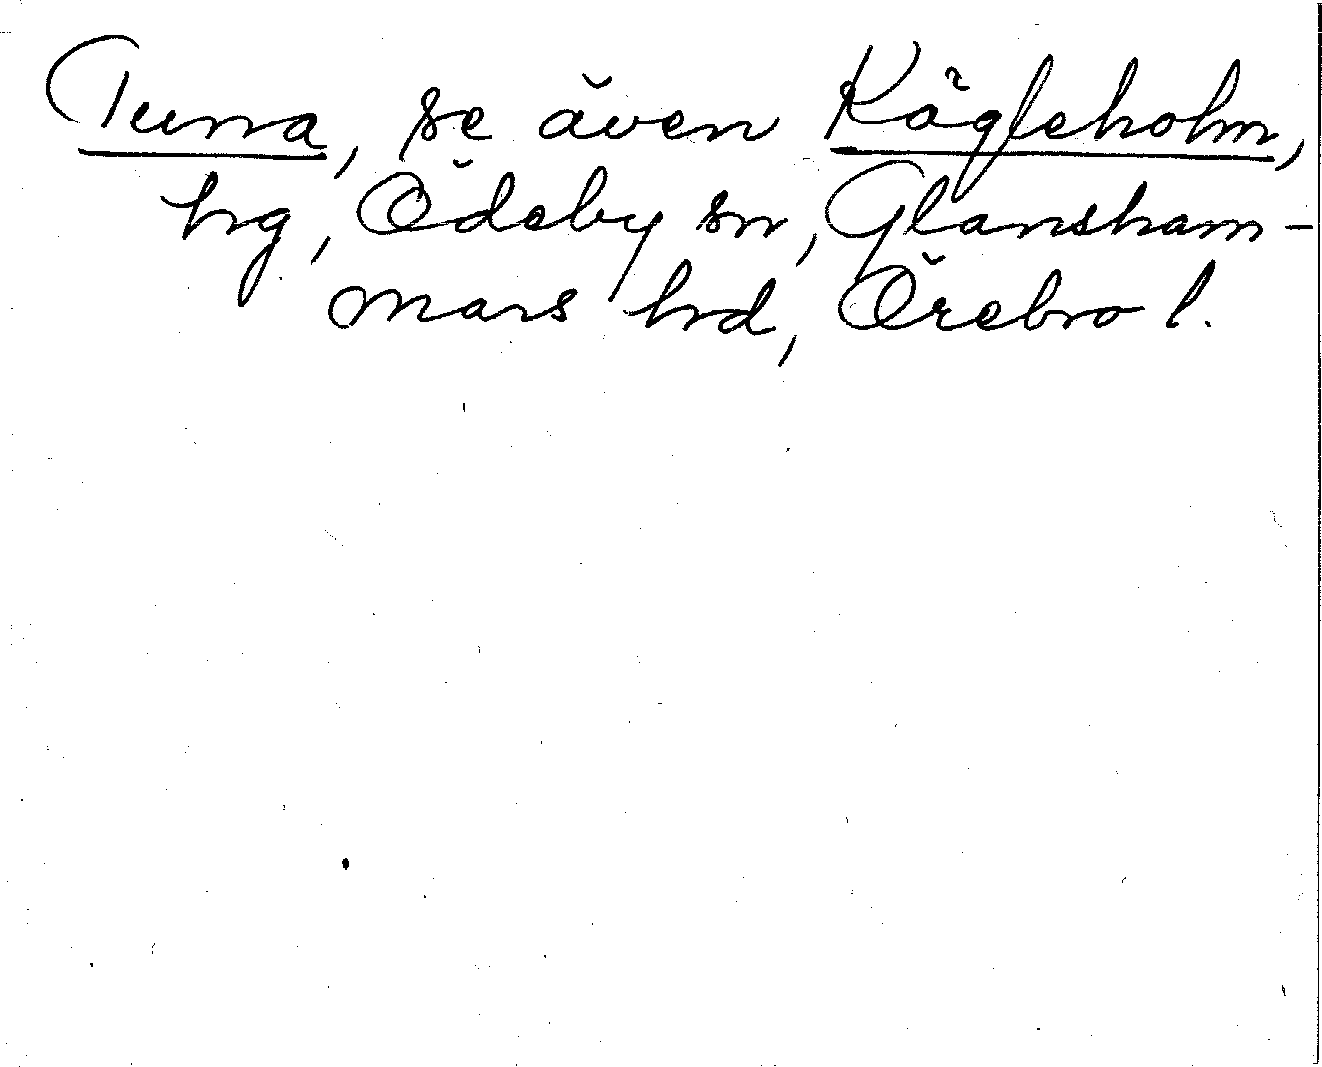 Tunna, se även Kägleholm,
hg, Ödeby sn, Glansham-
mars hd, Örebro l.